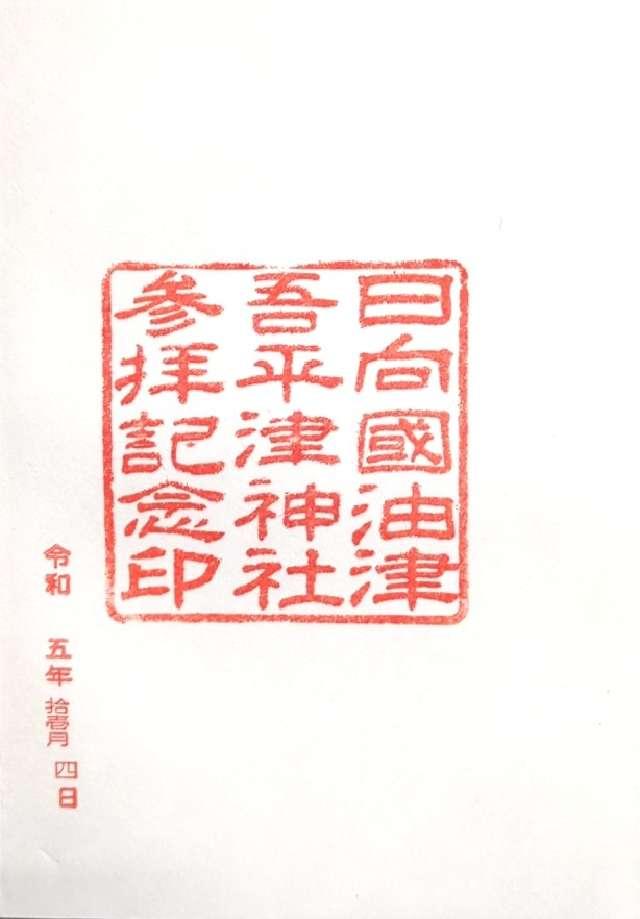 日向國油津
吾平津神社
参拝記念印
令和 五年 拾壱月 四日